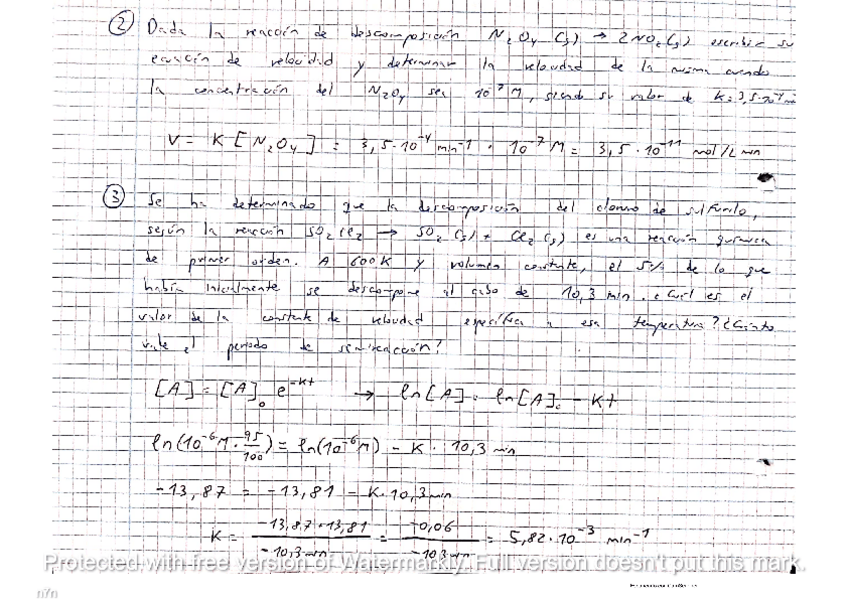 ② Dada la reacción de descomposición N₂O₄ (g) → 2NO₂(g) escribir su
ecuación de velocidad y determinar la velocidad de la misma cuando
la concentración del N₂O₄ sea 10⁻⁷ M, siendo su valor de K: 3,5·10⁻⁴
V = K [N₂O₄] = 3,5·10⁻⁴ min⁻¹ · 10⁻⁷ M = 3,5·10⁻¹¹ mol/L min
③ Se ha determinado que la descomposición del cloruro de sulfurilo,
según la reacción SO₂Cl₂ → SO₂ (g) + Cl₂ (g) es una reacción química
de primer orden. A 600K y volumen constante, el 5% de lo que
había inicialmente se descompone al cabo de 10,3 min. ¿Cuál es el
valor de la constante de velocidad específica a esa temperatura? ¿Cuánto
vale el periodo de semirreacción?
[A] = [A]₀ e⁻ᴷᵗ → ln[A] = ln[A]₀ - Kt
ln(10⁻⁶M · 95/100) = ln(10⁻⁶M) - K · 10,3 min
-13,87 = -13,81 - K·10,3 min
K = (-13,87+13,81)/(-10,3 min) = (-0,06)/(-10,3 min) = 5,82·10⁻³ min⁻¹
Protected with free version of Watermarkly. Full version doesn't put this mark.